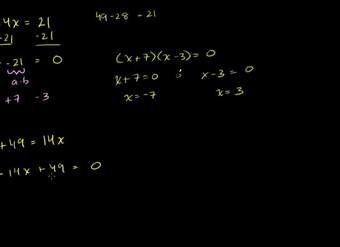 4x = 21
-21 -21
- -21 = 0
a·b
+7 -3
49-28 = 21
(x+7)(x-3) = 0
x+7=0 x-3=0
x=-7 x=3
+49 = 14x
- 14x + 49 = 0